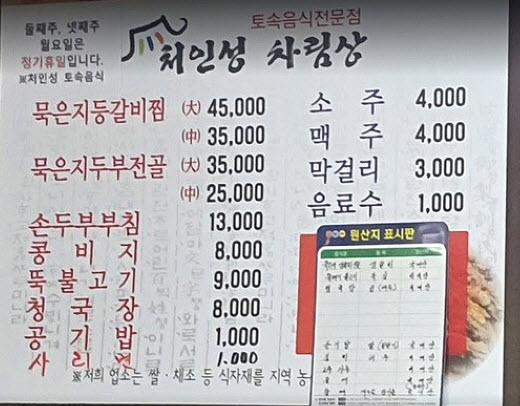 둘째주, 넷째주
월요일은
정기휴일입니다.
※처인성 토속음식
토속음식전문점
처인성 차림상
묵은지등갈비찜 (大) 45,000
(中) 35,000
묵은지두부전골 (大) 35,000
(中) 25,000
손두부부침 13,000
콩비지 8,000
뚝불고기 9,000
청국장 8,000
공기밥 1,000
사리면 1,000
소주 4,000
맥주 4,000
막걸리 3,000
음료수 1,000
원산지 표시판
※저희 업소는 쌀·채소 등 식자재를 지역 농